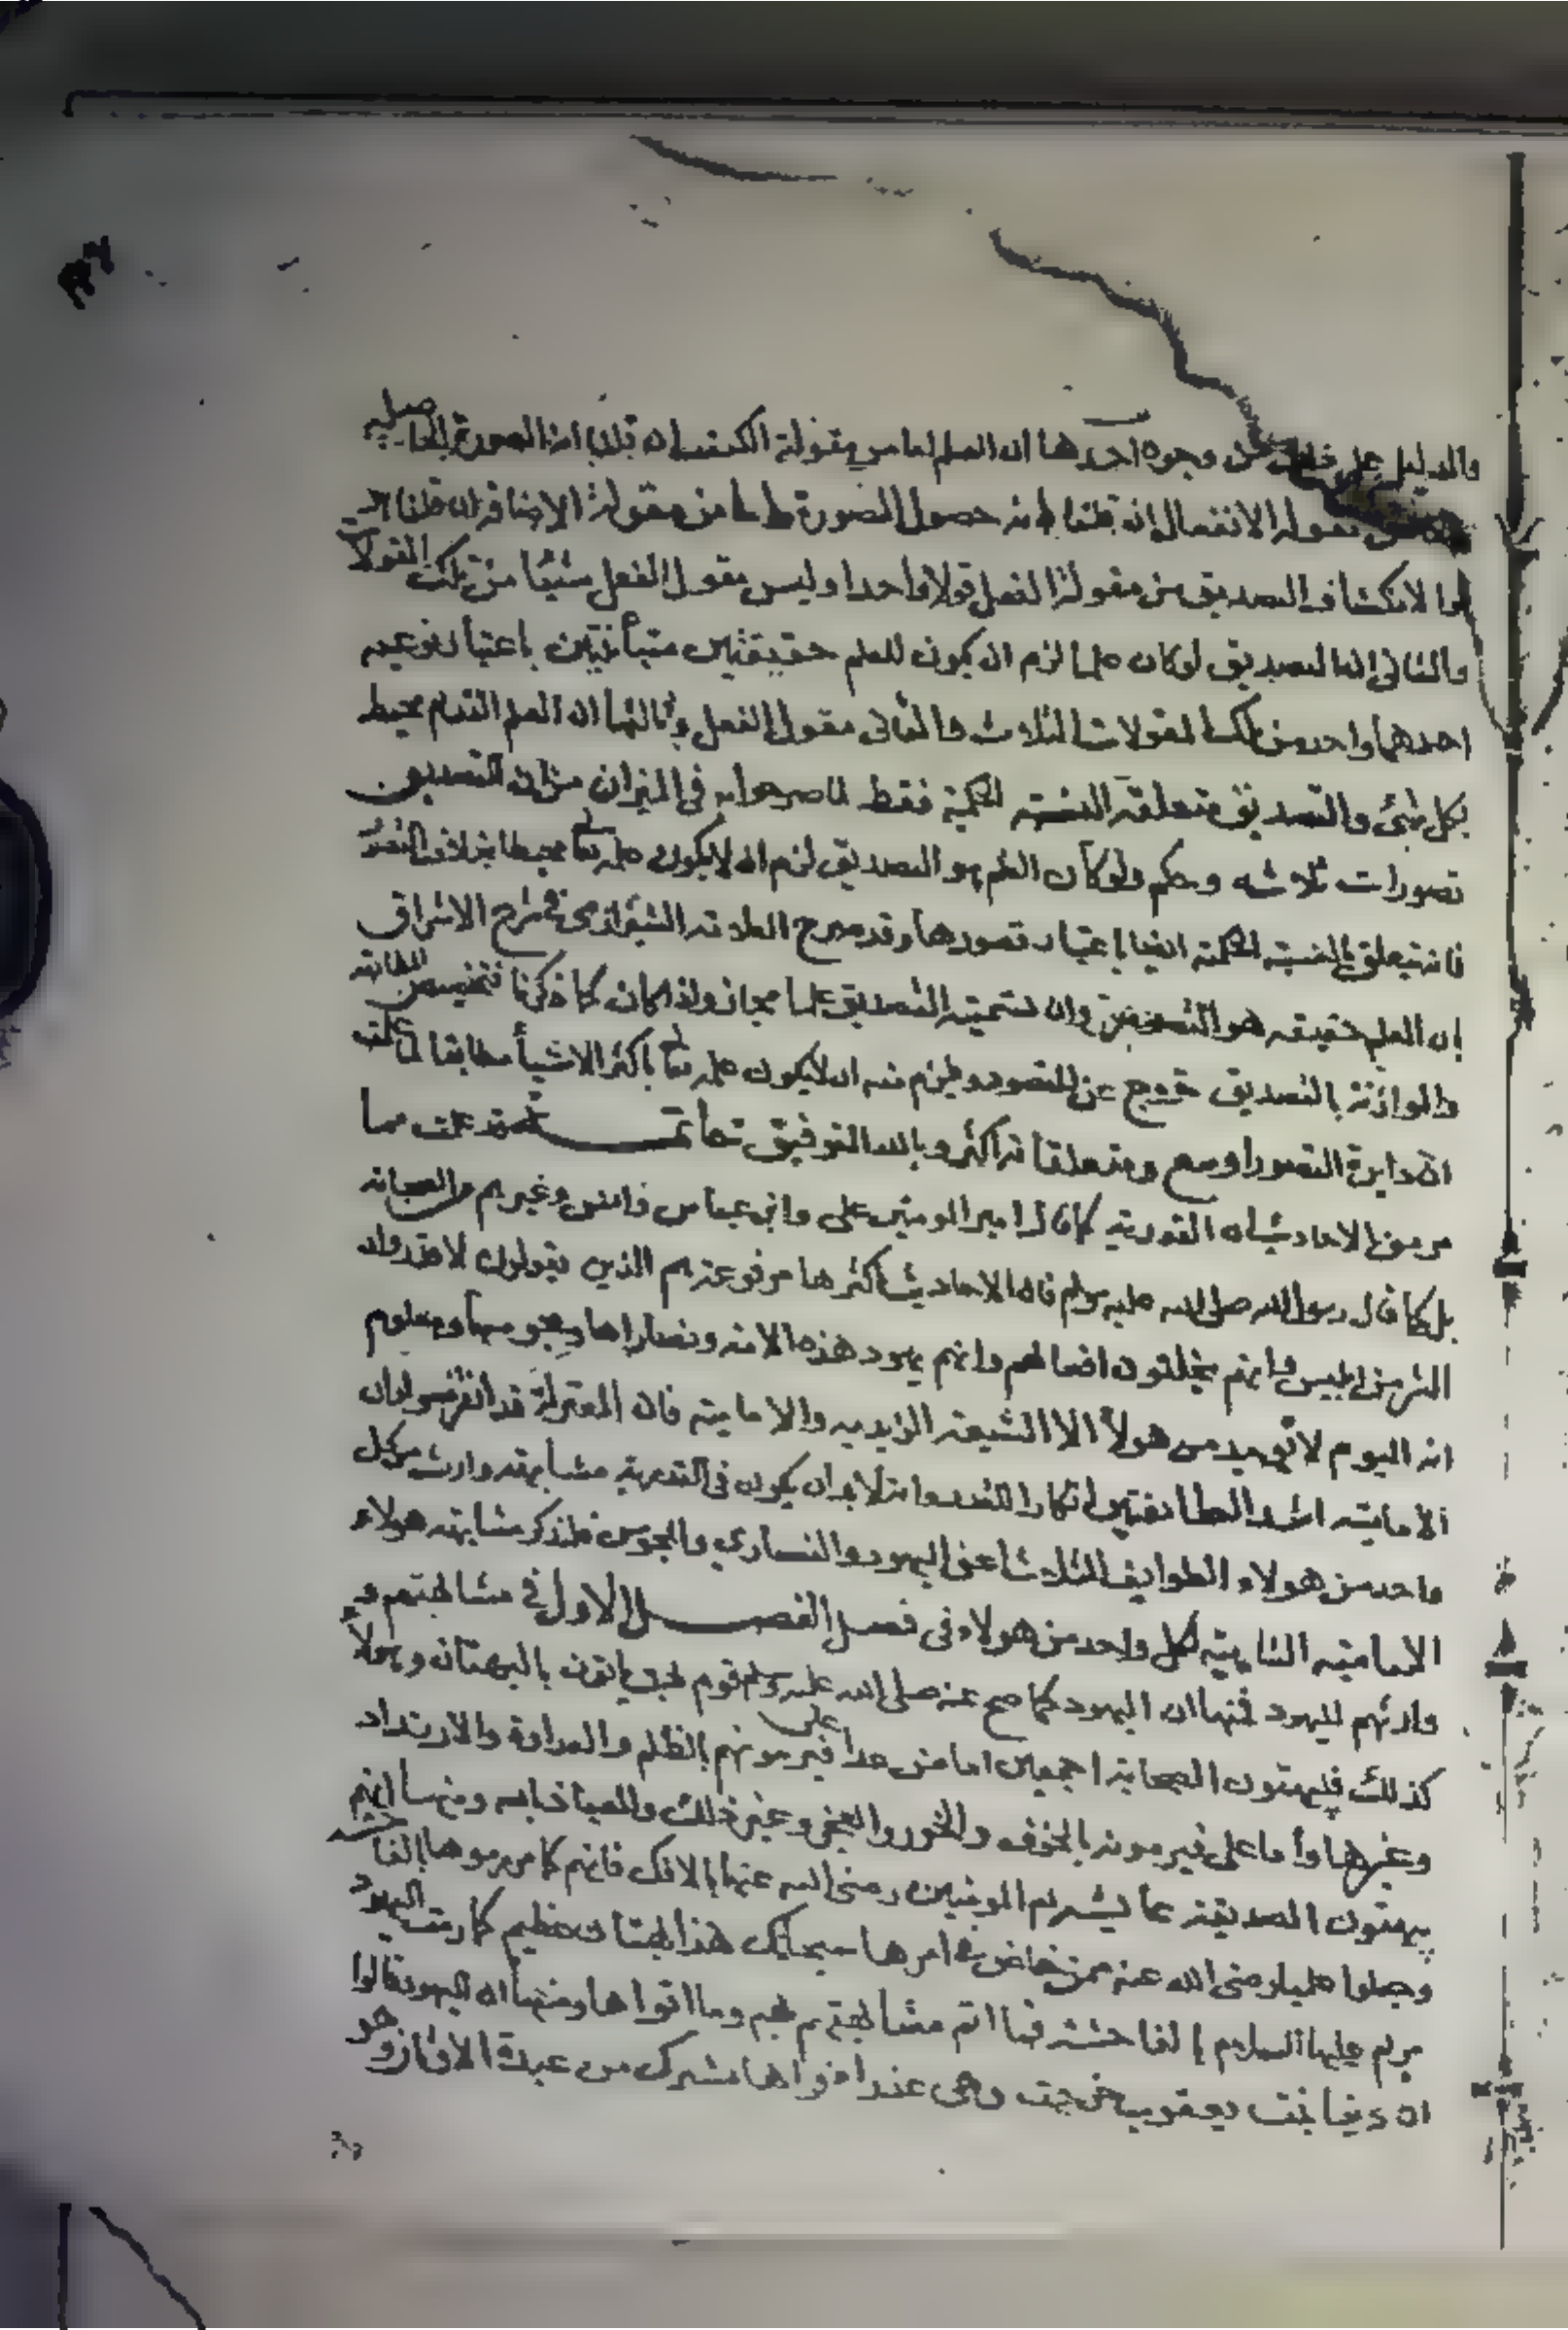 والدليل على ذلك من وجوه احدها ان العلم اما من مقولة الكيف ان قلنا انه الصورة الحاصلة
مقولة الانفعال ان قلنا انه حصول الصورة واما من مقولة الاضافة ان قلنا انه
الانكشاف والتصديق من مقولة الفعل قولا واحدا وليس مقولة الفعل شيئا من تلك المقولات
والثاني ان التصديق لو كان علما لزم ان يكون للعلم حقيقتين متبأنيتين باعتبار نوعيه
احدهما واحد من تلك المقولات الثلاث والثاني مقولة الفعل وثالثها ان العلم القديم محيط
بكل شئ والتصديق متعلقه النسبة الحكمية فقط لما صرحوا به في الميزان من ان التصديق
تصورات ثلاثه وحكم ولو كان العلم هو التصديق لزم ان لا يكون علمه تعا محيطا بخلاف التصور
فانه يتعلق بالنسبة الحكمية ايضا باعتبار تصورها وقد صرح العلامة الشيرازي في شرح الاشراق
ان العلم حقيقة هو التصور وان تسمية التصديق علما مجاز واذا كان كما ذكرنا فتخصيص المطابقة
والموازنة بالتصديق خروج عن المقصود ويلزم منه ان لا يكون علمه تعا باكثر الاشيأ مطابقا لما علمت
ان دايرة التصور اوسع ومتعلقاته اكثر وبالله التوفيق تعا تمـــــة قد علمت مما
مر من الاحاديث ان القدرية كما قال امير المومنين على وابن عباس وانس وغيرهم من الصحابة
بل كما قال رسول الله صلى الله عليه وسلم فان الاحاديث اكثرها مرفوعة هم الذين يقولون لا قدر وان
الشر من ابليس وانهم يخلقون افعالهم وانهم يهود هذه الامة ونصاراها ومجوسها ومعلوم
انه اليوم لا يوجد من هولأ الا الشيعة الزيديه والاماميه فان المعتزلة قد انقرضوا وان
الامامية اشد الطائفتين انكارا للقدر وانه لا بد ان يكون في القدرية مشابهة وارث من كل
واحد من هولاء الطوايف الثلاث اعني اليهود والنصاري والمجوس فلنذكر مشابهة هولاء
الامامية لكل واحد من هولاء في فصل الفصـــــل الاول في مشابهتهم و
وارثهم لليهود فمنها ان اليهود كما صح عنه صلى الله عليه وسلم قوم بهت ياتون بالبهتان وهولأ
كذلك فيبهتون الصحابة اجمعين اما من عدا على فيرمونهم بالظلم والعداوة والارتداد
وغيرها وأما على فيرمونه بالخوف والخور والعجز وغير ذلك والعياذ بالله ومنها انهم
يبهتون الصديقة عايشة ام المومنين رضى الله عنها بالافك فانهم كما مر رموها بالفاحشة
وجعلوا عليا رضى الله عنه ممن خاض في امرها سبحانك هذا بهتان عظيم كما رمت اليهود
مريم عليها السلام بالفاحشة فما اتم مشابهتهم بهم وما اقواها ومنها ان اليهود قالوا
ان دينا بنت يعقوب خرجت وهي عذرا فزاها مشرك من عبدة الاوثان وهو